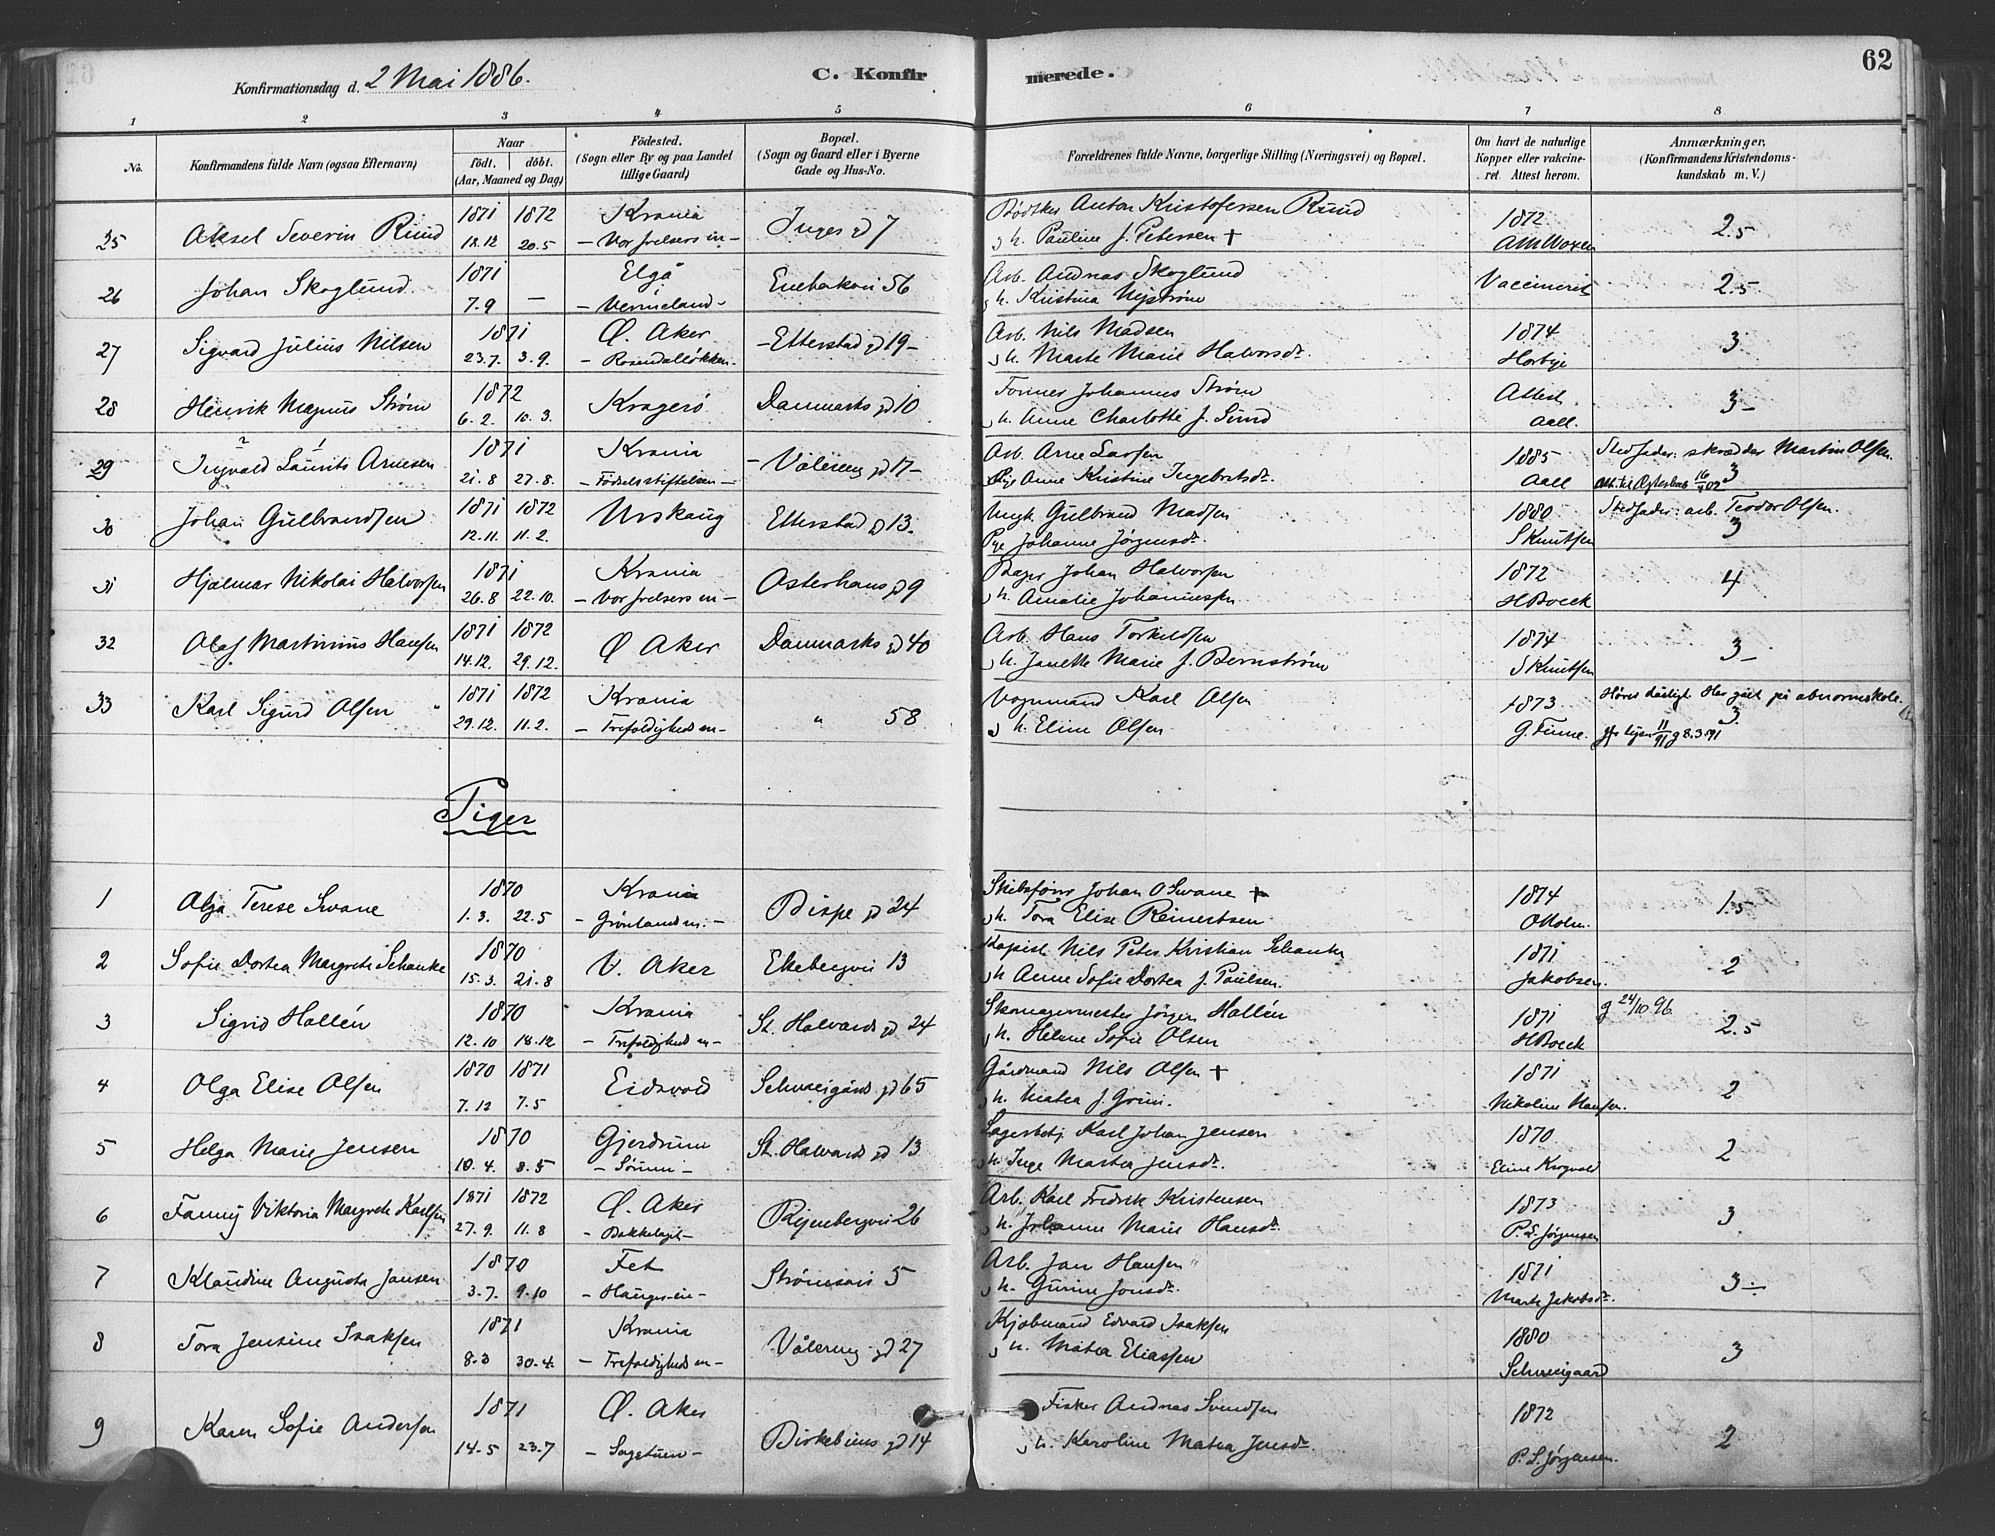 62
Konfirmationsdag d. 2 Mai 1886.
C. Konfirmerede.
1 2 3 4 5 6 7 8
No. Konfirmandens fulde Navn (ogsaa Efternavn)
Naar födt. döbt. (Aar, Maaned og Dag)
Födested. (Sogn eller By og paa Landet tillige Gaard)
Bopæl. (Sogn og Gaard eller i Byerne Gade og Hus-No.
Forældrenes fulde Navne, borgerlige Stilling (Næringsvei) og Bopæl.
Om havt de naturlige Kopper eller vakcineret. Attest herom.
Anmærkninger, (Konfirmandens Kristendomskundskab m. V.)
25 Aksel Severin Ruud 1871 1872 Krania Inges gd 7 Bødtker Anton Kristofersen Ruud 1872 2.5
18.12 20.5 - Vor frelsers m - h. Pauline f. Petersen +
26 Johan Skoglund 1871 Elgå Enebakvei 56 Arb. Andreas Skoglund Vaccineret 2.5
7.9 — i - Vermeland - h. Kristina Nystrøm
27 Sigvard Julius Nilsen 1871 Ø. Aker - Etterstad gd 19 - Arb. Nils Madsen 1874 3
23.7. 3.9. - Rosendalløkken. h. Marte Marie Halvorsdr. Horbye
28 Henrik Magnus Strøm 1872 Kragerö Danmarks gd 10 Former Johannes Strøm Attest 3-
6.2. 10.3. h. Anne Charlotte f. Lund Aall.
29 Ingvald Laurits Arnesen 1871 Krania - Vålereng gd 17 - Arb. Arne Larsen 1885 Stedfader: skrædder Martin Olsen. 3
21.8 27.8. - Födselsstiftelsen - Pige Anne Kristine Ingebretsdr. Aall
30 Johan Gulbrandsen 1871 1872 Urskoug Etterstad gd 13. Ungk. Gulbrand Madsen 1880 Stedfader: arb. Teodor Olsen.
12.11. 11.2. Pige Johanne Jørgensdr. S Knutsen 3
31 Hjalmar Nikolai Halvorsen 1871 Krania Osterhaus gd 9 Bager Johan Halvorsen 1872 4
26.8 22.10. - Vor frelsers m - h. Amalie Johannessen H Boeck
32 Olaf Martinius Hansen 1871 1872 Ø Aker Danmarks gd 40 Arb. Hans Torkildsen 1874 3-
14.12. 29.12. h. Janette Marie f. Bernstrøm S Knutsen
33 Karl Sigurd Olsen 1871 1872 Krania " 58 Vognmand Karl Olsen 1873 Hører dårligt Har gået på abnormskole. 3
29.12. 11.2. - Trefoldigheds m - h. Eline Olsen G. Finne.
Piger
1 Olga Terese Svane 1870 Krania Bispe gd 24 Skibsfører Johan O Svane + 1874 1.5
1.3. 22.5 - Grønlands m. - h. Tora Elise Reinertsen O Holm.
2 Sofie Dortea Margrete Schanke 1870 V. Aker Ekebergvei 13 Kopist Nils Peter Kristian Schanke 1871 2
15.3. 21.8 h Anne Sofie Dortea f. Paulsen. Jakobsen.
3 Sigrid Hallén 1870 Krania St. Halvards gd 24 Skomagermester Jørgen Hallén 1871 g 24/10 96. 2.5
12.10 18.12 - Trefoldigheds m - h. Helene Sofie Olsen H Boeck
4 Olga Elise Olsen 1870 1871 Eidsvold Schweigårds gd 65 Gårdmand Nils Olsen + 1871 2
7.12 7.5 h. Matea f. Grini. Nikoline Hansen.
5 Helga Marie Jensen 1870 Gjerdrum St. Halvards gd 13 Lagerbetj. Karl Johan Jensen 1870 2
10.4. 8.5 - Sönni - h Inge Martea Jensdr. Eline Krogvold
6 Fanny Viktoria Margrete Karlsen 1871 1872 Ø. Aker Ryenbergvei 26 Arb. Karl Fredrik Kristensen 1873 3
27.9. 11.8 - Bakkelaget - h. Johanne Marie Hansdr. P. L. Jørgensen
7 Klaudine Augusta Jansen 1870 Fet Strömsvei 5 Arb. Jan Hansen 1871 3-
3.7. 9.10 - Hauger-ei - h. Gunine Jonsdr. Marte Jakobsdr.
8 Tora Jensine Isaksen 1871 Krania Vålereng gd 27 Kjøbmand Edvard Isaksen 1880 3
8.3 30.4. - Trefoldigheds m - h. Matea Eliassen Schweigaard
9 Karen Sofie Andersen 1871 Ø. Aker Birkebeins gd 14 Fisker Andreas Svendsen 1872 2
14.5 23.7 - Sagstuen - h. Karoline Matea Jensdr. P. L. Jørgensen.